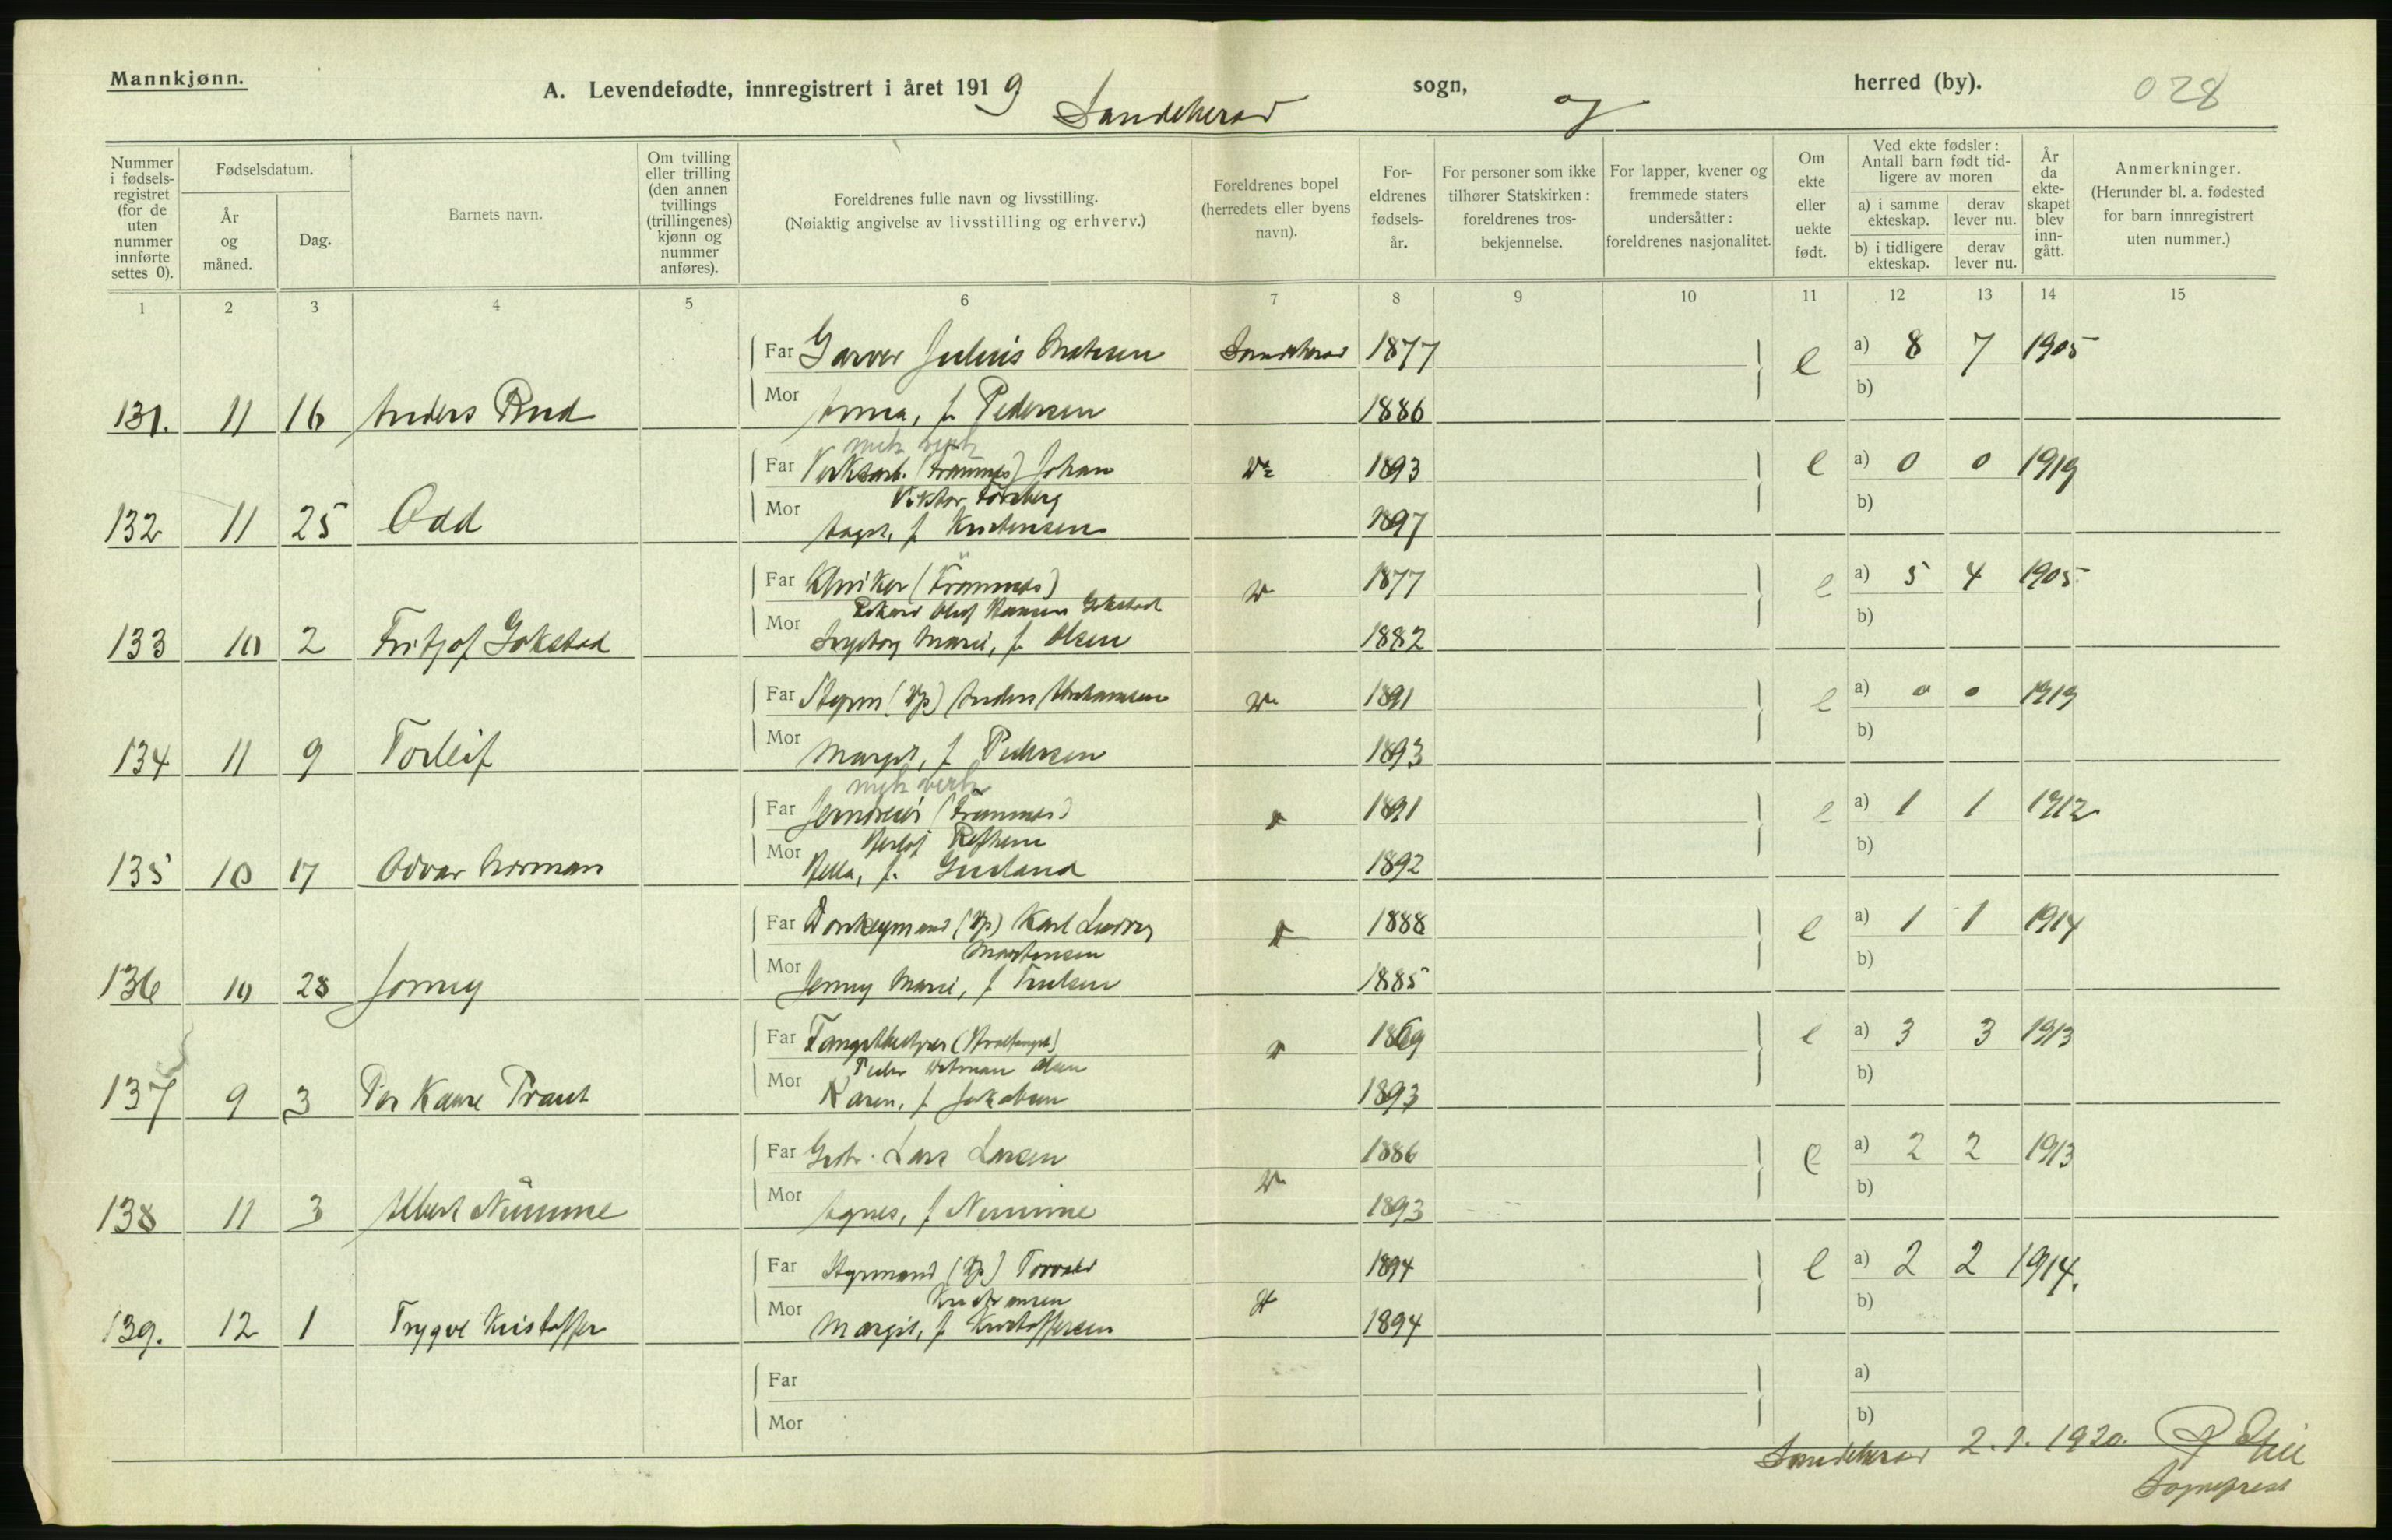 Mannkjønn.
A. Levendefødte, innregistrert i året 1919
Sandeherad sogn, og herred (by).
028
Nummer i fødsels-registret (for de uten nummer innførte settes 0).
Fødselsdatum.
År og måned.
Dag.
Barnets navn.
Om tvilling eller trilling (den annen tvillings (trillingenes) kjønn og nummer anføres).
Foreldrenes fulle navn og livsstilling.
(Nøiaktig angivelse av livsstilling og erhverv.)
Foreldrenes bopel (herredets eller byens navn).
For-eldrenes fødsels-år.
For personer som ikke tilhører Statskirken: foreldrenes tros-bekjennelse.
For lapper, kvener og fremmede staters undersåtter: foreldrenes nasjonalitet.
Om ekte eller uekte født.
Ved ekte fødsler: Antall barn født tid-ligere av moren
a) i samme ekteskap.
derav lever nu.
b) i tidligere ekteskap.
derav lever nu.
År da ekte-skapet blev inn-gått.
Anmerkninger.
(Herunder bl. a. fødested for barn innregistrert uten nummer.)
1 2 3 4 5 6 7 8 9 10 11 12 13 14 15
Far Garver Julius Sandeherad 1877 e a) 8 7 1905
Mor Anna, f. Pedersen 1886 b)
131. 11 16 Anders Rud
mek verk
Far (Framnæs) Johan 1893 e a) 0 0 1919
Viktor
Mor f. Kristensen 1897 b)
132 11 25 Odd
Far (Framnæs) 1877 e a) 5 4 1905
Olaf Hansen Gokstad
Mor Ingeborg Marie, f. Olsen 1882 b)
133 10 2 Fritjof Gokstad
Far Styrm. Anders Abrahamsen 1891 e a) 0 0 1919
Mor Margit, f. Pedersen 1893 b)
134 11 9 Torleif
mek verk
Far Jerndreier (Framnæs) 1891 e a) 1 1 1912
Mor f. 1892 b)
135 10 17 Odvar Norman
Far Karl Ludvig 1888 e a) 1 1 1914
Martinsen
Mor Jenny Marie, f. 1885 b)
136 10 28 Jonny
Far 1869 e a) 3 3 1913
Peder Olsen
Mor Karen, f. Jakobsen 1893 b)
137 9 3 Per Kaare
Far Lars Larsen 1886 e a) 2 2 1913
Mor Agnes, f. Numme 1893 b)
138 11 3 Albert Numme
Far Styrmand 1894 e a) 2 2 1914.
Kristiansen
Mor Margit, f. Kristoffersen 1894 b)
139. 12 1 Trygve Kristoffer
Far a)
Mor b)
Sandeherad 2.1.1920.
Sogneprest